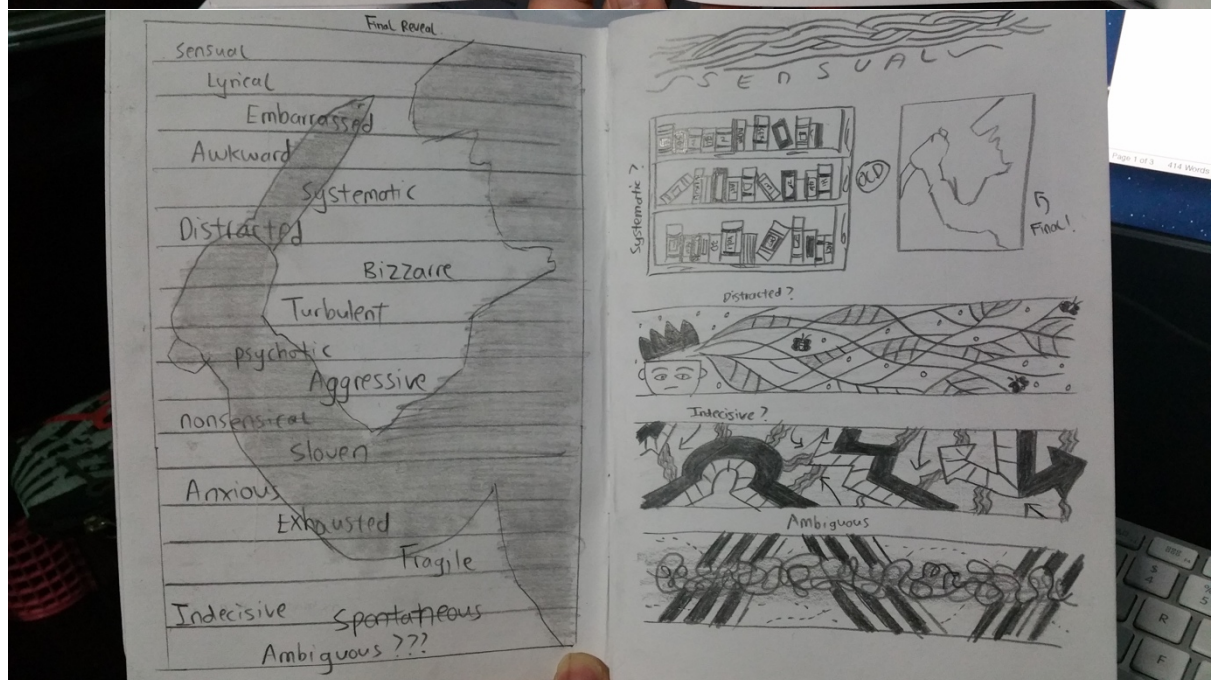 Final Reveal
Sensual
Lyrical
Embarrassed
Awkward
Systematic
Distracted
Bizzarre
Turbulent
psychotic
Aggressive
nonsensical
Sloven
Anxious
Exhausted
Fragile
Indecisive
Spontaneous
Ambiguous ???
SENSUAL
Systematic ?
OCD
Final!
Distracted ?
Indecisive ?
Ambiguous
Page 1 of 3 414 Words
$
4
%
5
R
F